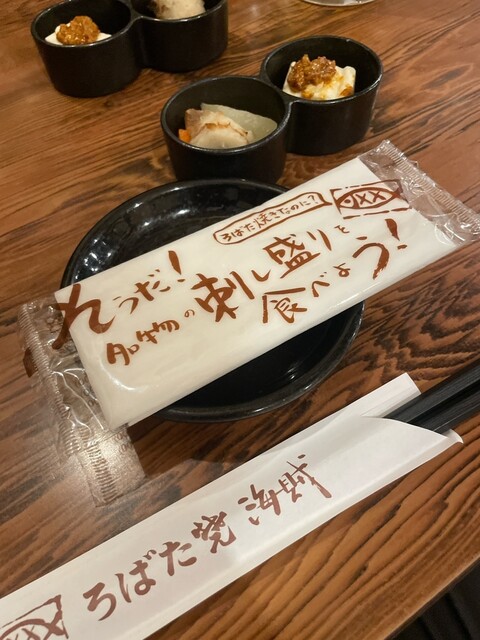 ろばた焼きなのに?
そうだ!
名物の刺し盛りを
食べよう!
ろばた焼 海賊